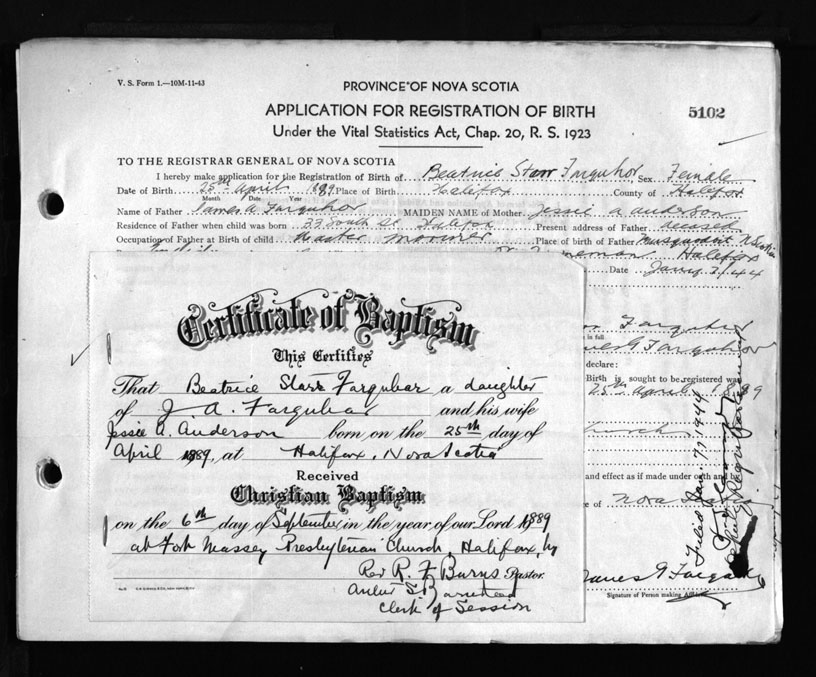 V. S. Form 1.—10M-11-43
PROVINCE OF NOVA SCOTIA
APPLICATION FOR REGISTRATION OF BIRTH
5102
Under the Vital Statistics Act, Chap. 20, R. S. 1923
TO THE REGISTRAR GENERAL OF NOVA SCOTIA
I hereby make application for the Registration of Birth of Beatrice Starr Farquhar Sex Female
Date of Birth 25th April 1889 Place of Birth Halifax County of Halifax
Month Date Year
Name of Father James A Farquhar MAIDEN NAME of Mother Jessie A Anderson
Residence of Father when child was born 33 South St Halifax Present address of Father deceased
Occupation of Father at Birth of child Master Mariner Place of birth of Father Musquodobit N Scotia
Halifax
Date Jany 3, 44
Farquhar
in full
Farquhar
declare:
Birth is sought to be registered was
25th April 1889
Church
and effect as if made under oath and by
e of Nova Scotia
Filed Jan. 7, 1944
Farquhar
Signature of Person making Affidavit
Certificate of Baptism
This Certifies
That Beatrice Starr Farquhar a daughter
of J. A. Farquhar and his wife
Jessie A. Anderson born on the 25th day of
April 1889, at Halifax, Nova Scotia
Received
Christian Baptism
on the 6th day of September in the year of our Lord 1889
at Fort Massey Presbyterian Church, Halifax, NS
Rev R. F. Burns Pastor.
Arthur S. Barnstead
Clerk of Session